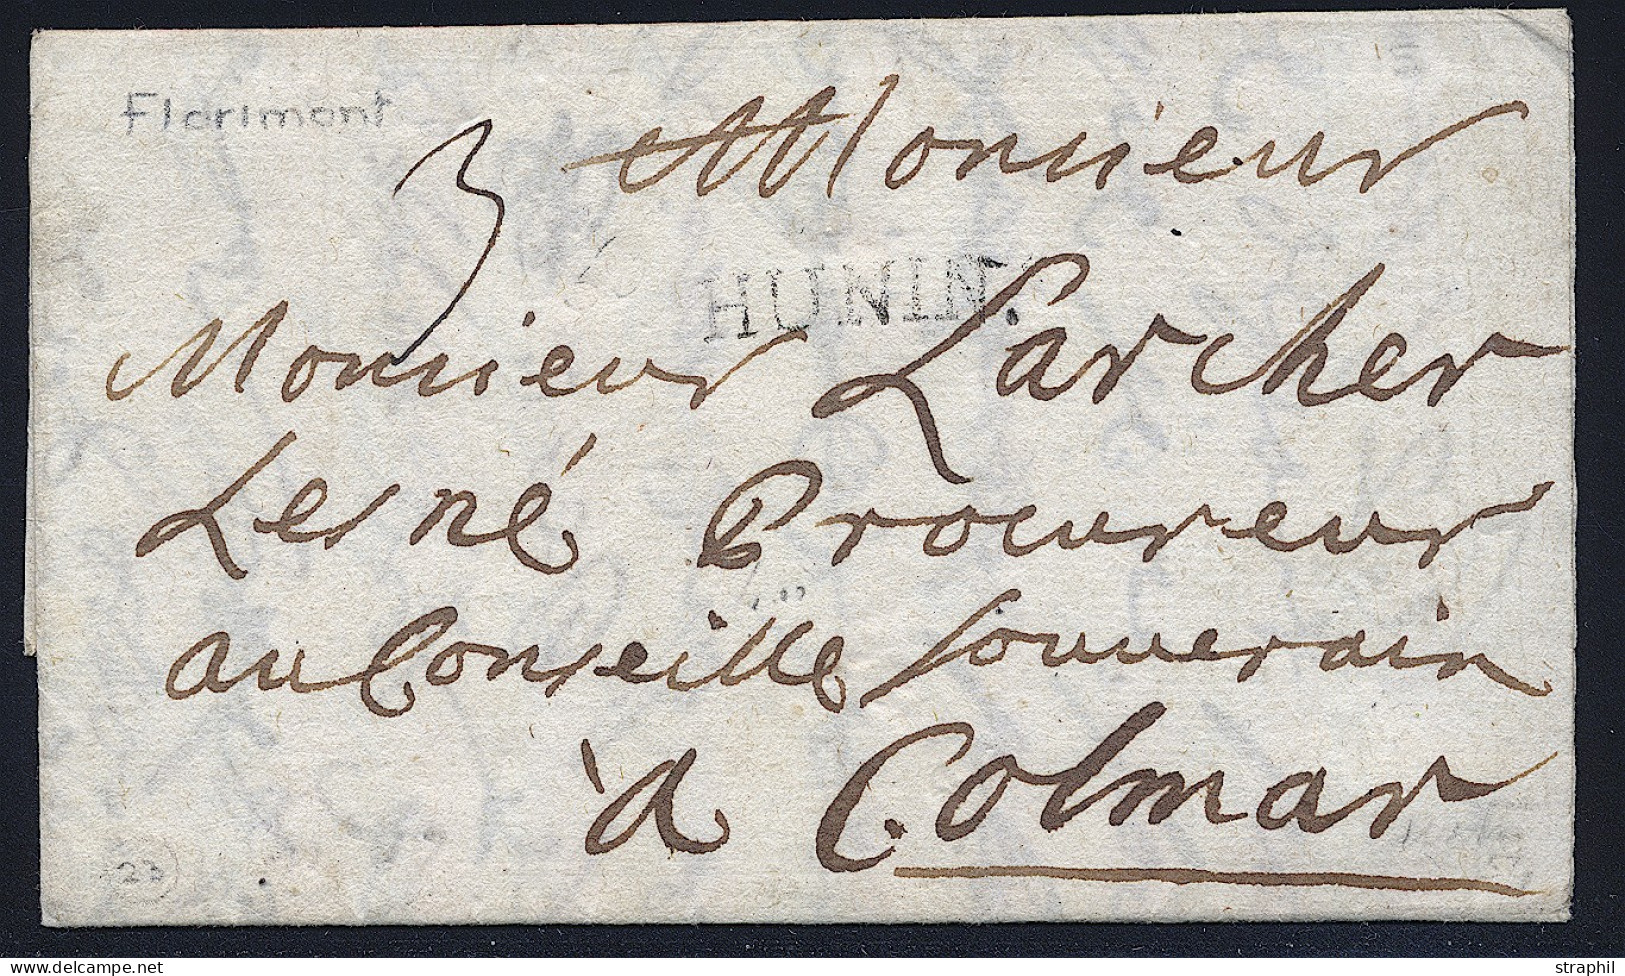 Florimont
3 Monsieur
HUNIN.
Monsieur Larcher
Lesné Procureur
au Conseille souverain
à Colmar
22
straphil